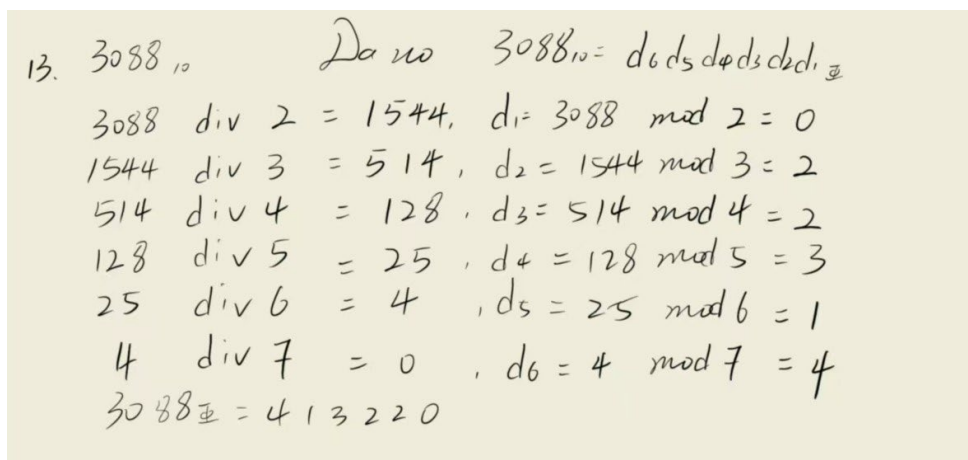 13. 3088₁₀ Dano 3088₁₀ = d₆d₅d₄d₃d₂d₁
3088 div 2 = 1544, d₁ = 3088 mod 2 = 0
1544 div 3 = 514, d₂ = 1544 mod 3 = 2
514 div 4 = 128, d₃ = 514 mod 4 = 2
128 div 5 = 25, d₄ = 128 mod 5 = 3
25 div 6 = 4, d₅ = 25 mod 6 = 1
4 div 7 = 0, d₆ = 4 mod 7 = 4
3088 = 413220